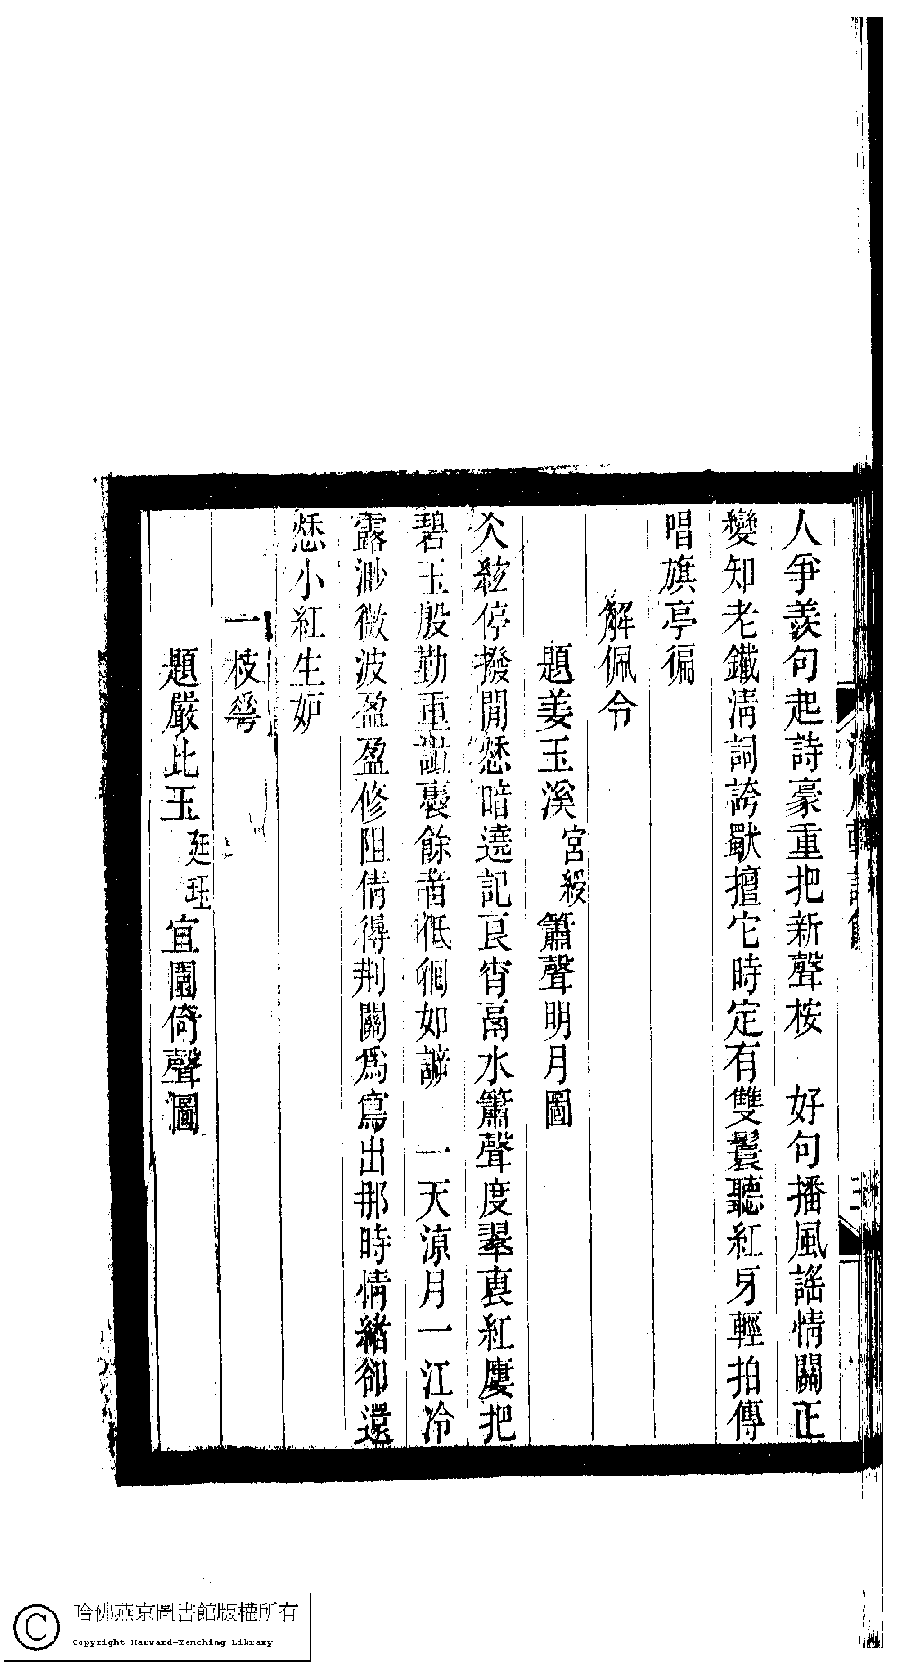 人爭羨句起詩豪重把新聲桉　好句播風謠情關正
變知老鐵淸詞誇獨擅它時定有雙鬟聽紅牙輕拍傳
唱旗亭徧
解佩令
題姜玉溪宮綬簫聲明月圖
久絃停撥閒愁暗遶記良宵鬲水簫聲度翠袁紅慶把
碧玉殷勤重謝裹餘音低徊如訴　一天凉月一江冷
露渺微波盈盈修阻倩得荆關爲寫出那時情緒卻還
愁小紅生妒
一枝花
題嚴比玉廷珏宜園倚聲圖
哈佛燕京圖書館版權所有
Copyright Harvard-Yenching Library